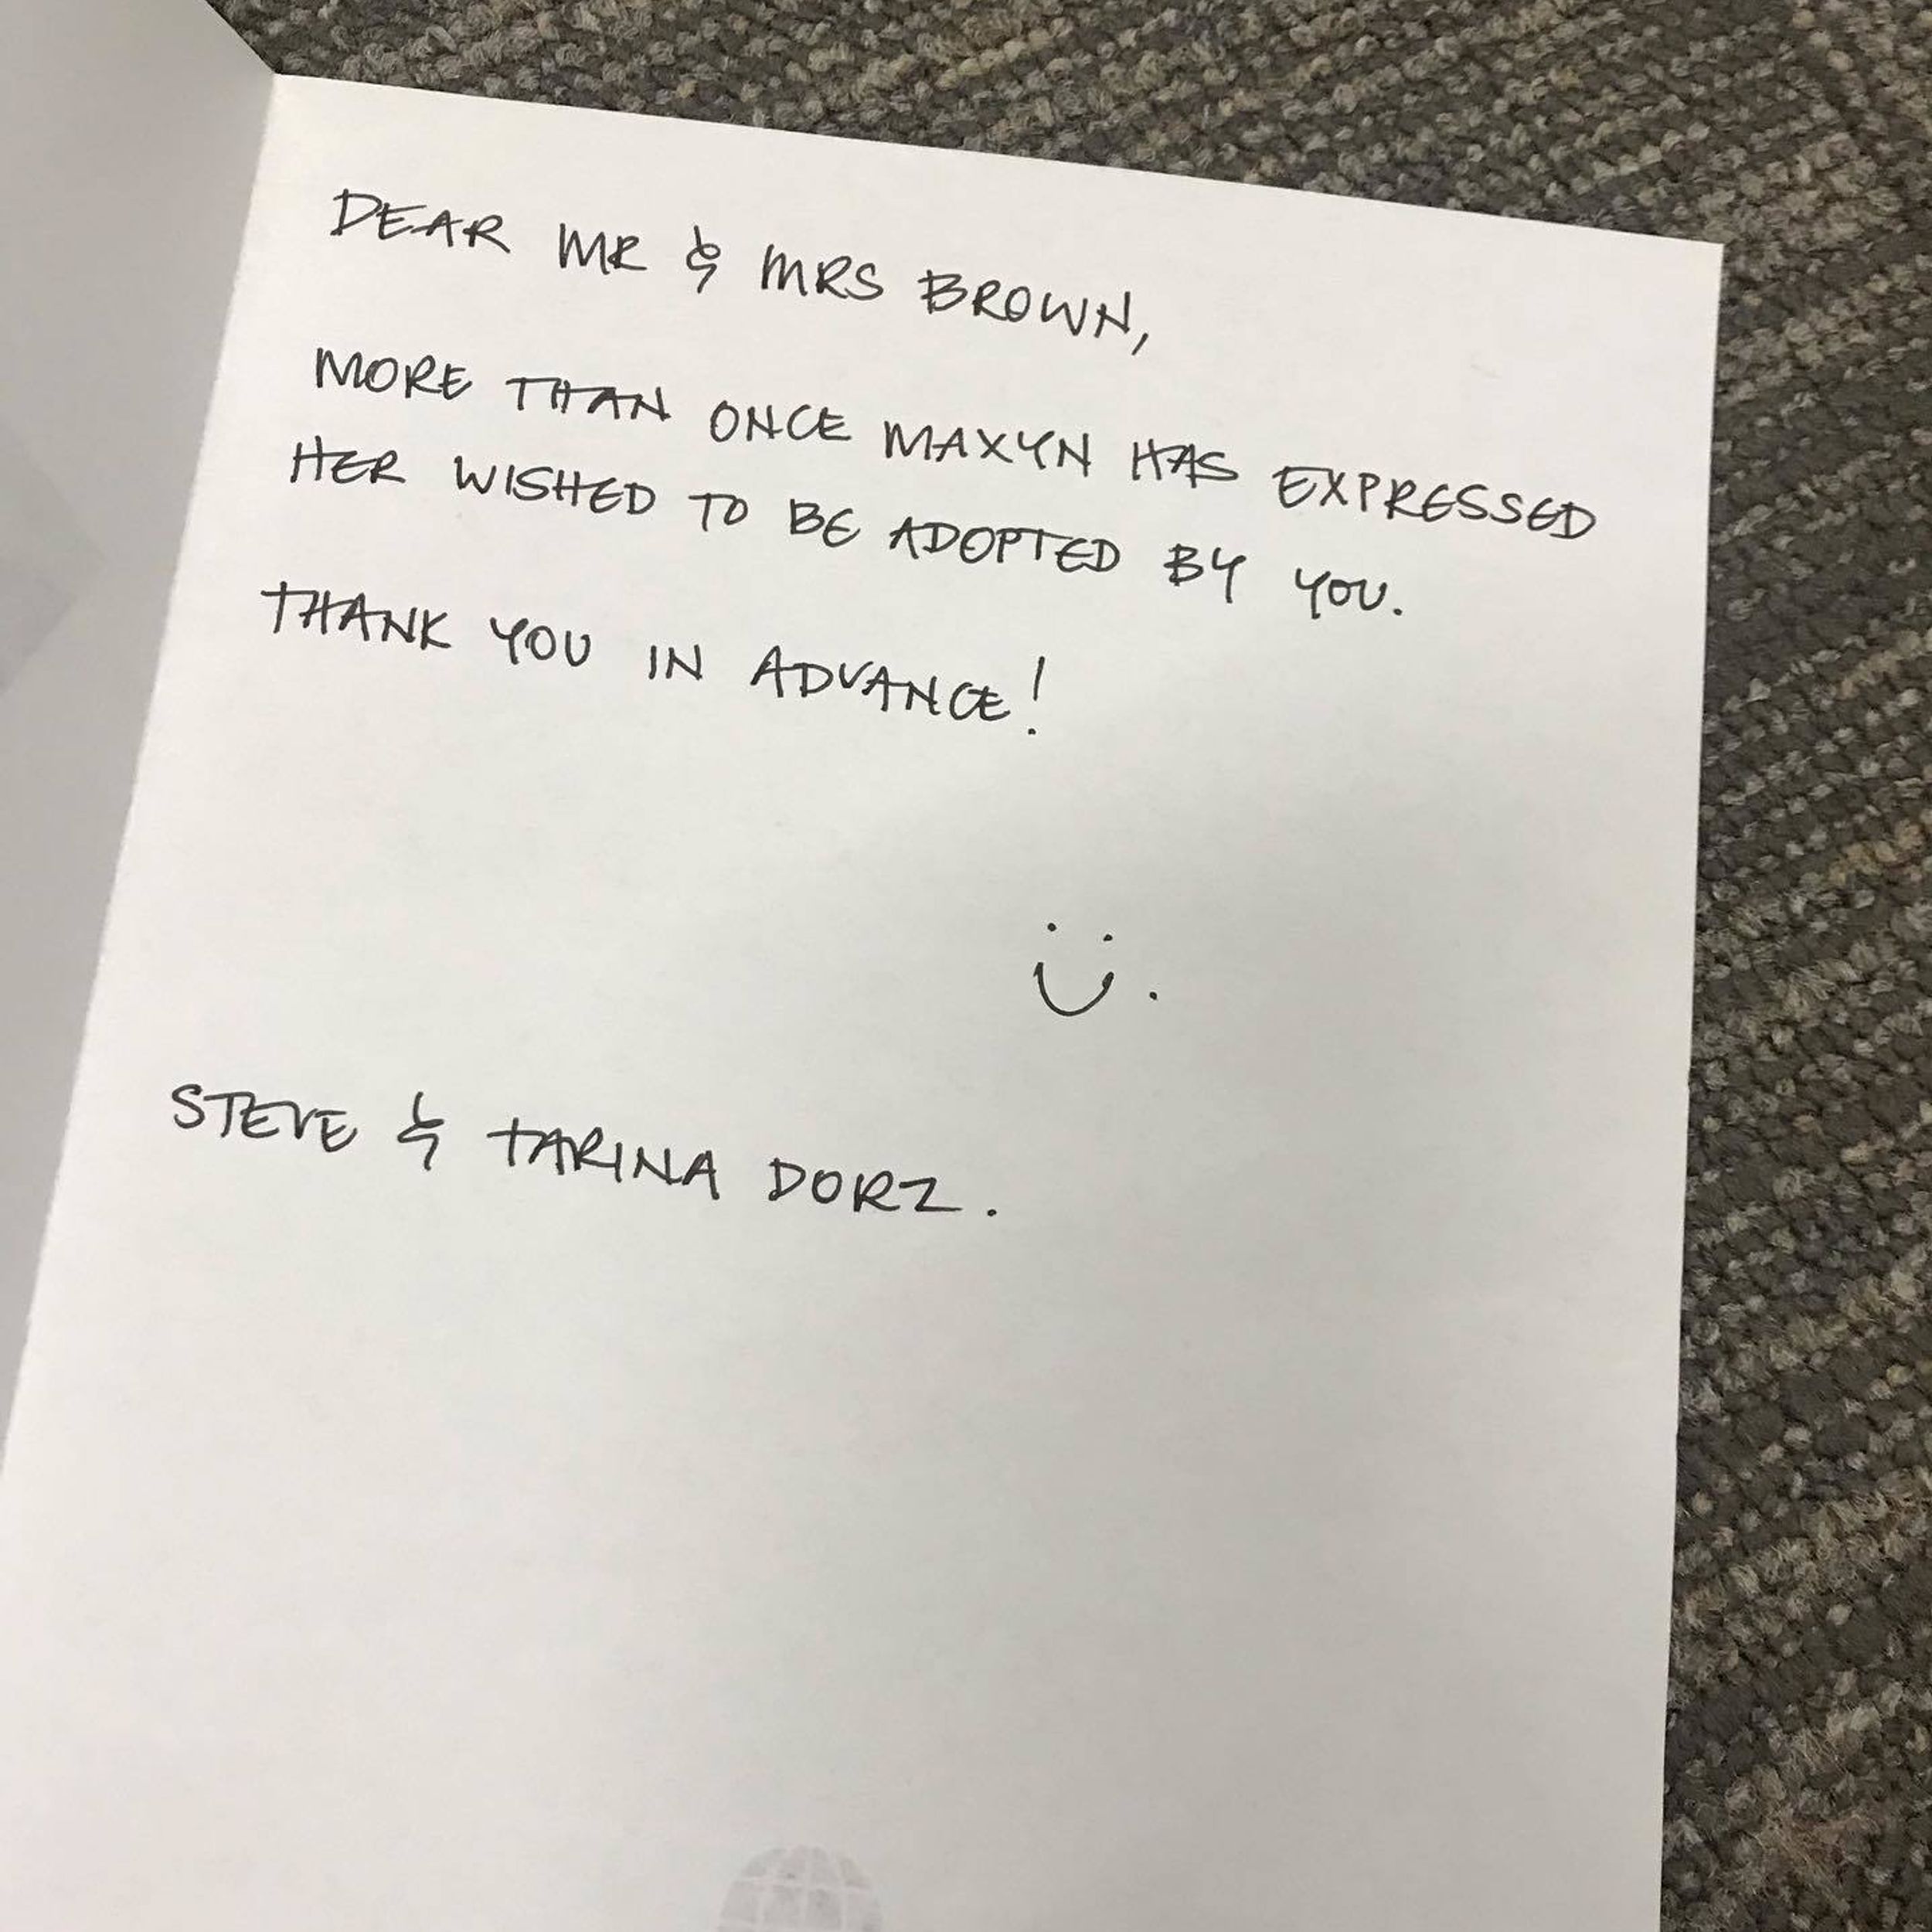 DEAR MR & MRS BROWN,
MORE THAN ONCE MAXYN HAS EXPRESSED
HER WISHED TO BE ADOPTED BY YOU.
THANK YOU IN ADVANCE!
STEVE & TARINA DORZ.